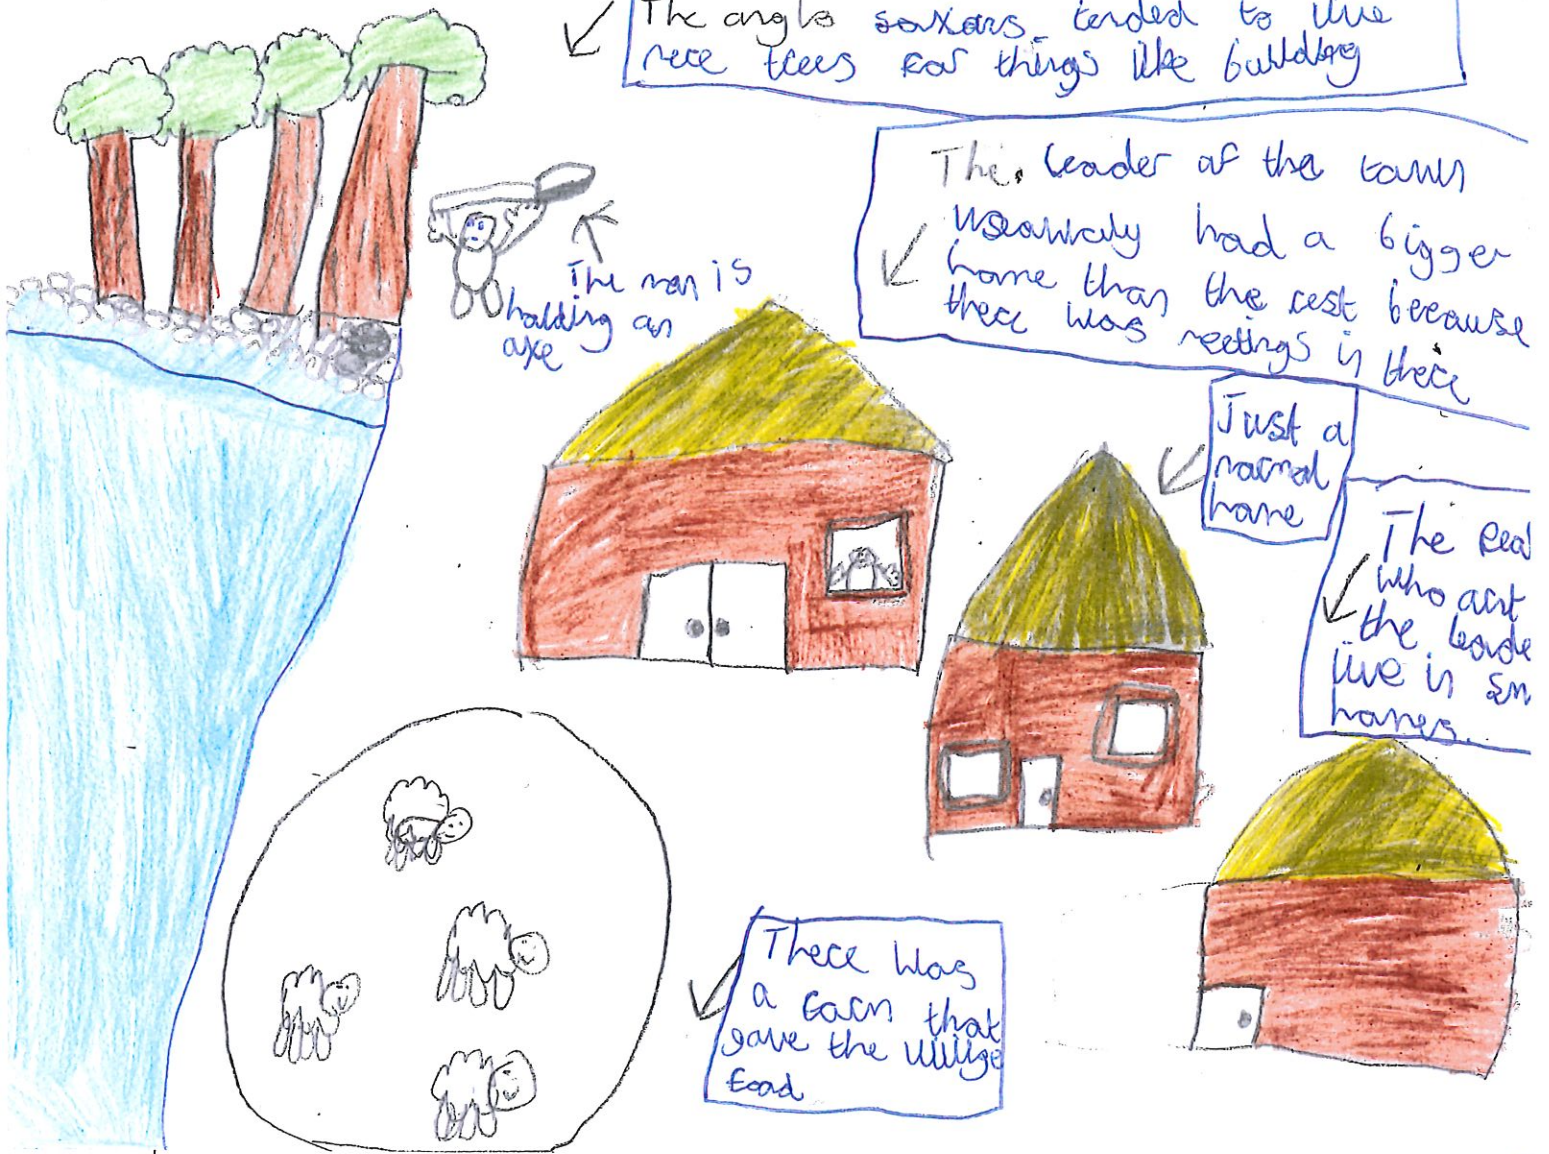 The anglo saxons tended to live
nere trees for things like building
The leader of the town
useawraly had a bigger
home than the rest because
there was meetings in there
The man is
holding an
axe
Just a
normal
home
The
who aint
the leade
live in sm
homes.
There was
a farm that
gave the villige
food